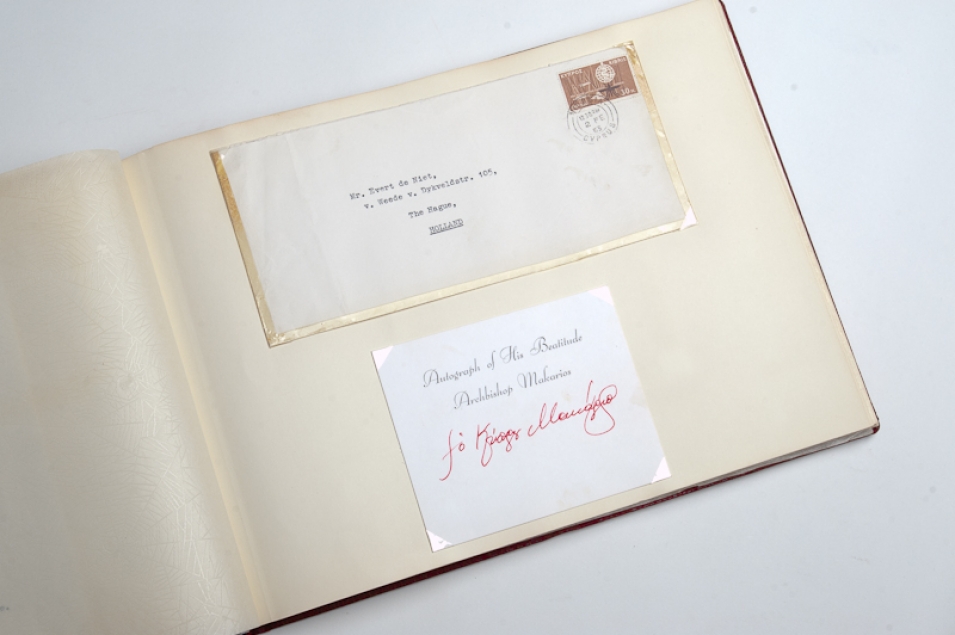 ΚΥΠΡΟΣ KIBRIS
30 M
CYPRUS
Mr. Evert de Niet,
v. Weede v. Dykveldstr. 105,
The Hague,
HOLLAND
Autograph of His Beatitude
Archbishop Makarios
† ὁ Κύπρου Μακάριος